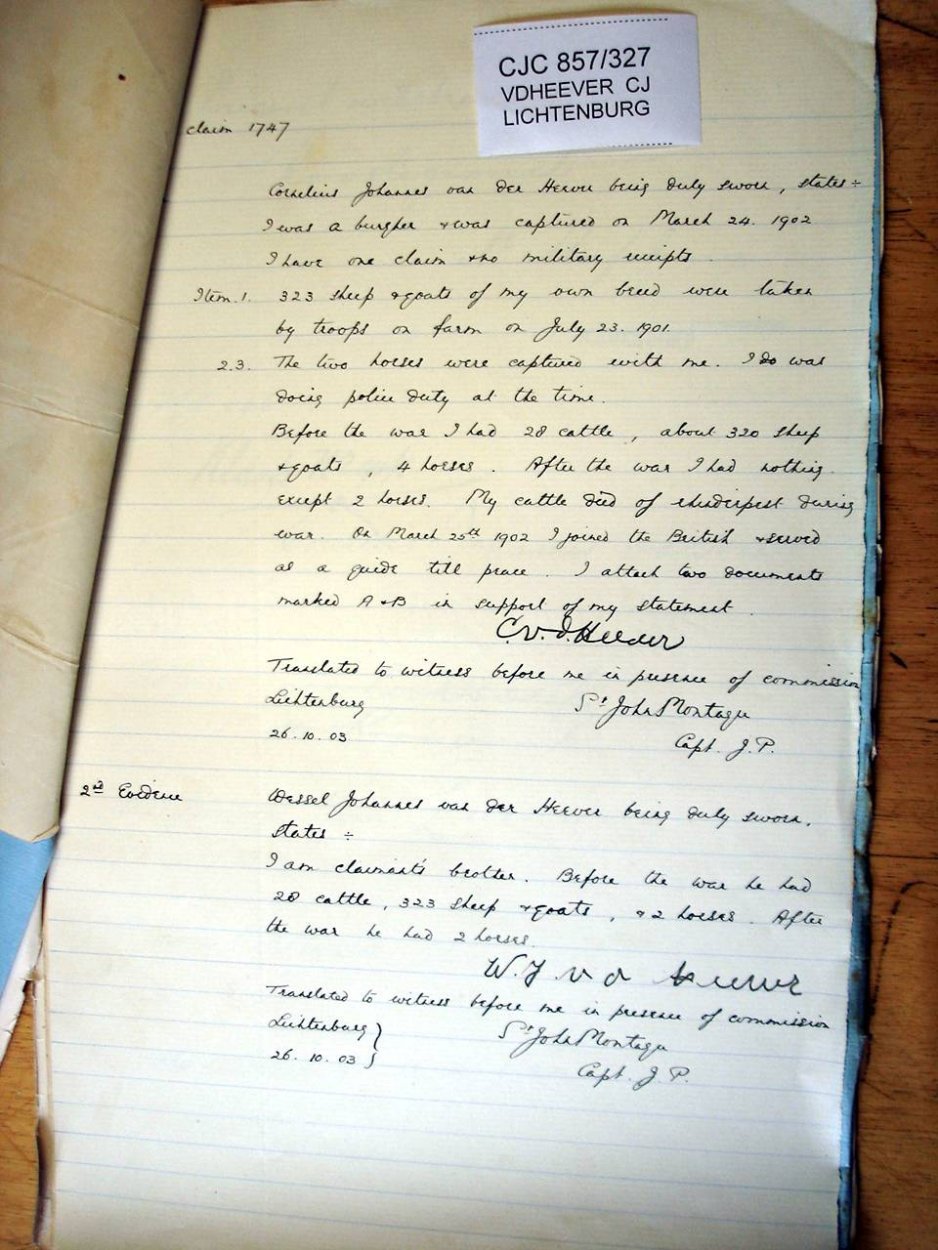 CJC 857/327
VDHEEVER CJ
LICHTENBURG
claim 1747
Cornelius Johannes van der Heever being duly sworn, states :-
I was a burgher & was captured on March 24. 1902
I have one claim & no military receipts.
Item. 1. 323 sheep & goats of my own breed were taken
by troops on farm on July 23. 1901.
2.3. The two horses were captured with me. I do was
doing police duty at the time.
Before the war I had 28 cattle, about 320 sheep
& goats, 4 horses. After the war I had nothing
except 2 horses. My cattle died of rhinderpest during
war. On March 25th 1902 I joined the British & served
as a guide till peace. I attach two documents
marked A & B in support of my statement.
C.v.d.Heever
Translated to witness before me in presence of commission
Lichtenburg St John Montagu
26.10.03 Capt. J.P.
2nd Evidence Wessel Johannes van der Heever being duly sworn,
states :-
I am claimant's brother. Before the war he had
28 cattle, 323 sheep & goats, & 2 horses. After
the war he had 2 horses.
W.J. v d Heever
Translated to witness before me in presence of commission
Lichtenburg } St John Montagu
26.10.03 } Capt. J.P.